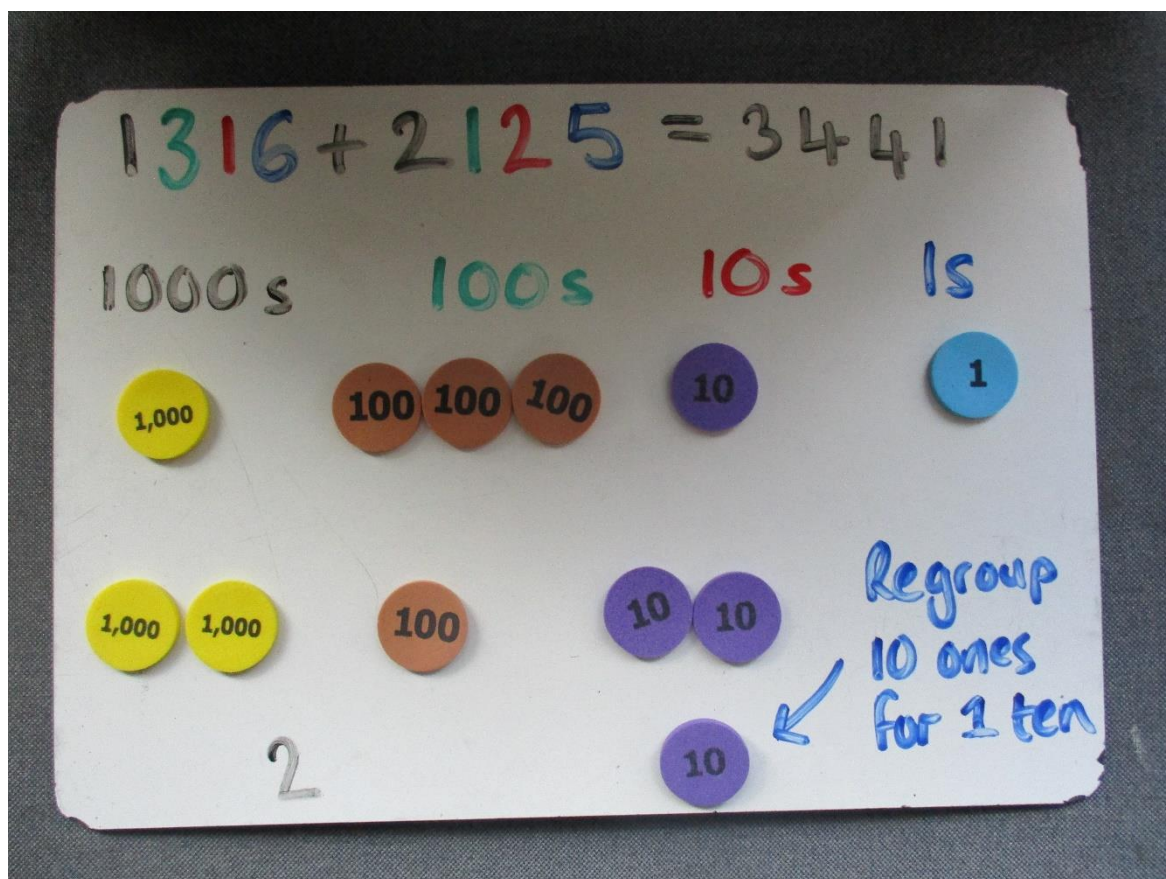 1316 + 2125 = 3441
1000s 100s 10s 1s
1,000 100 100 100 10 1
1,000 1,000 100 10 10
Regroup
10 ones
for 1 ten
2 10